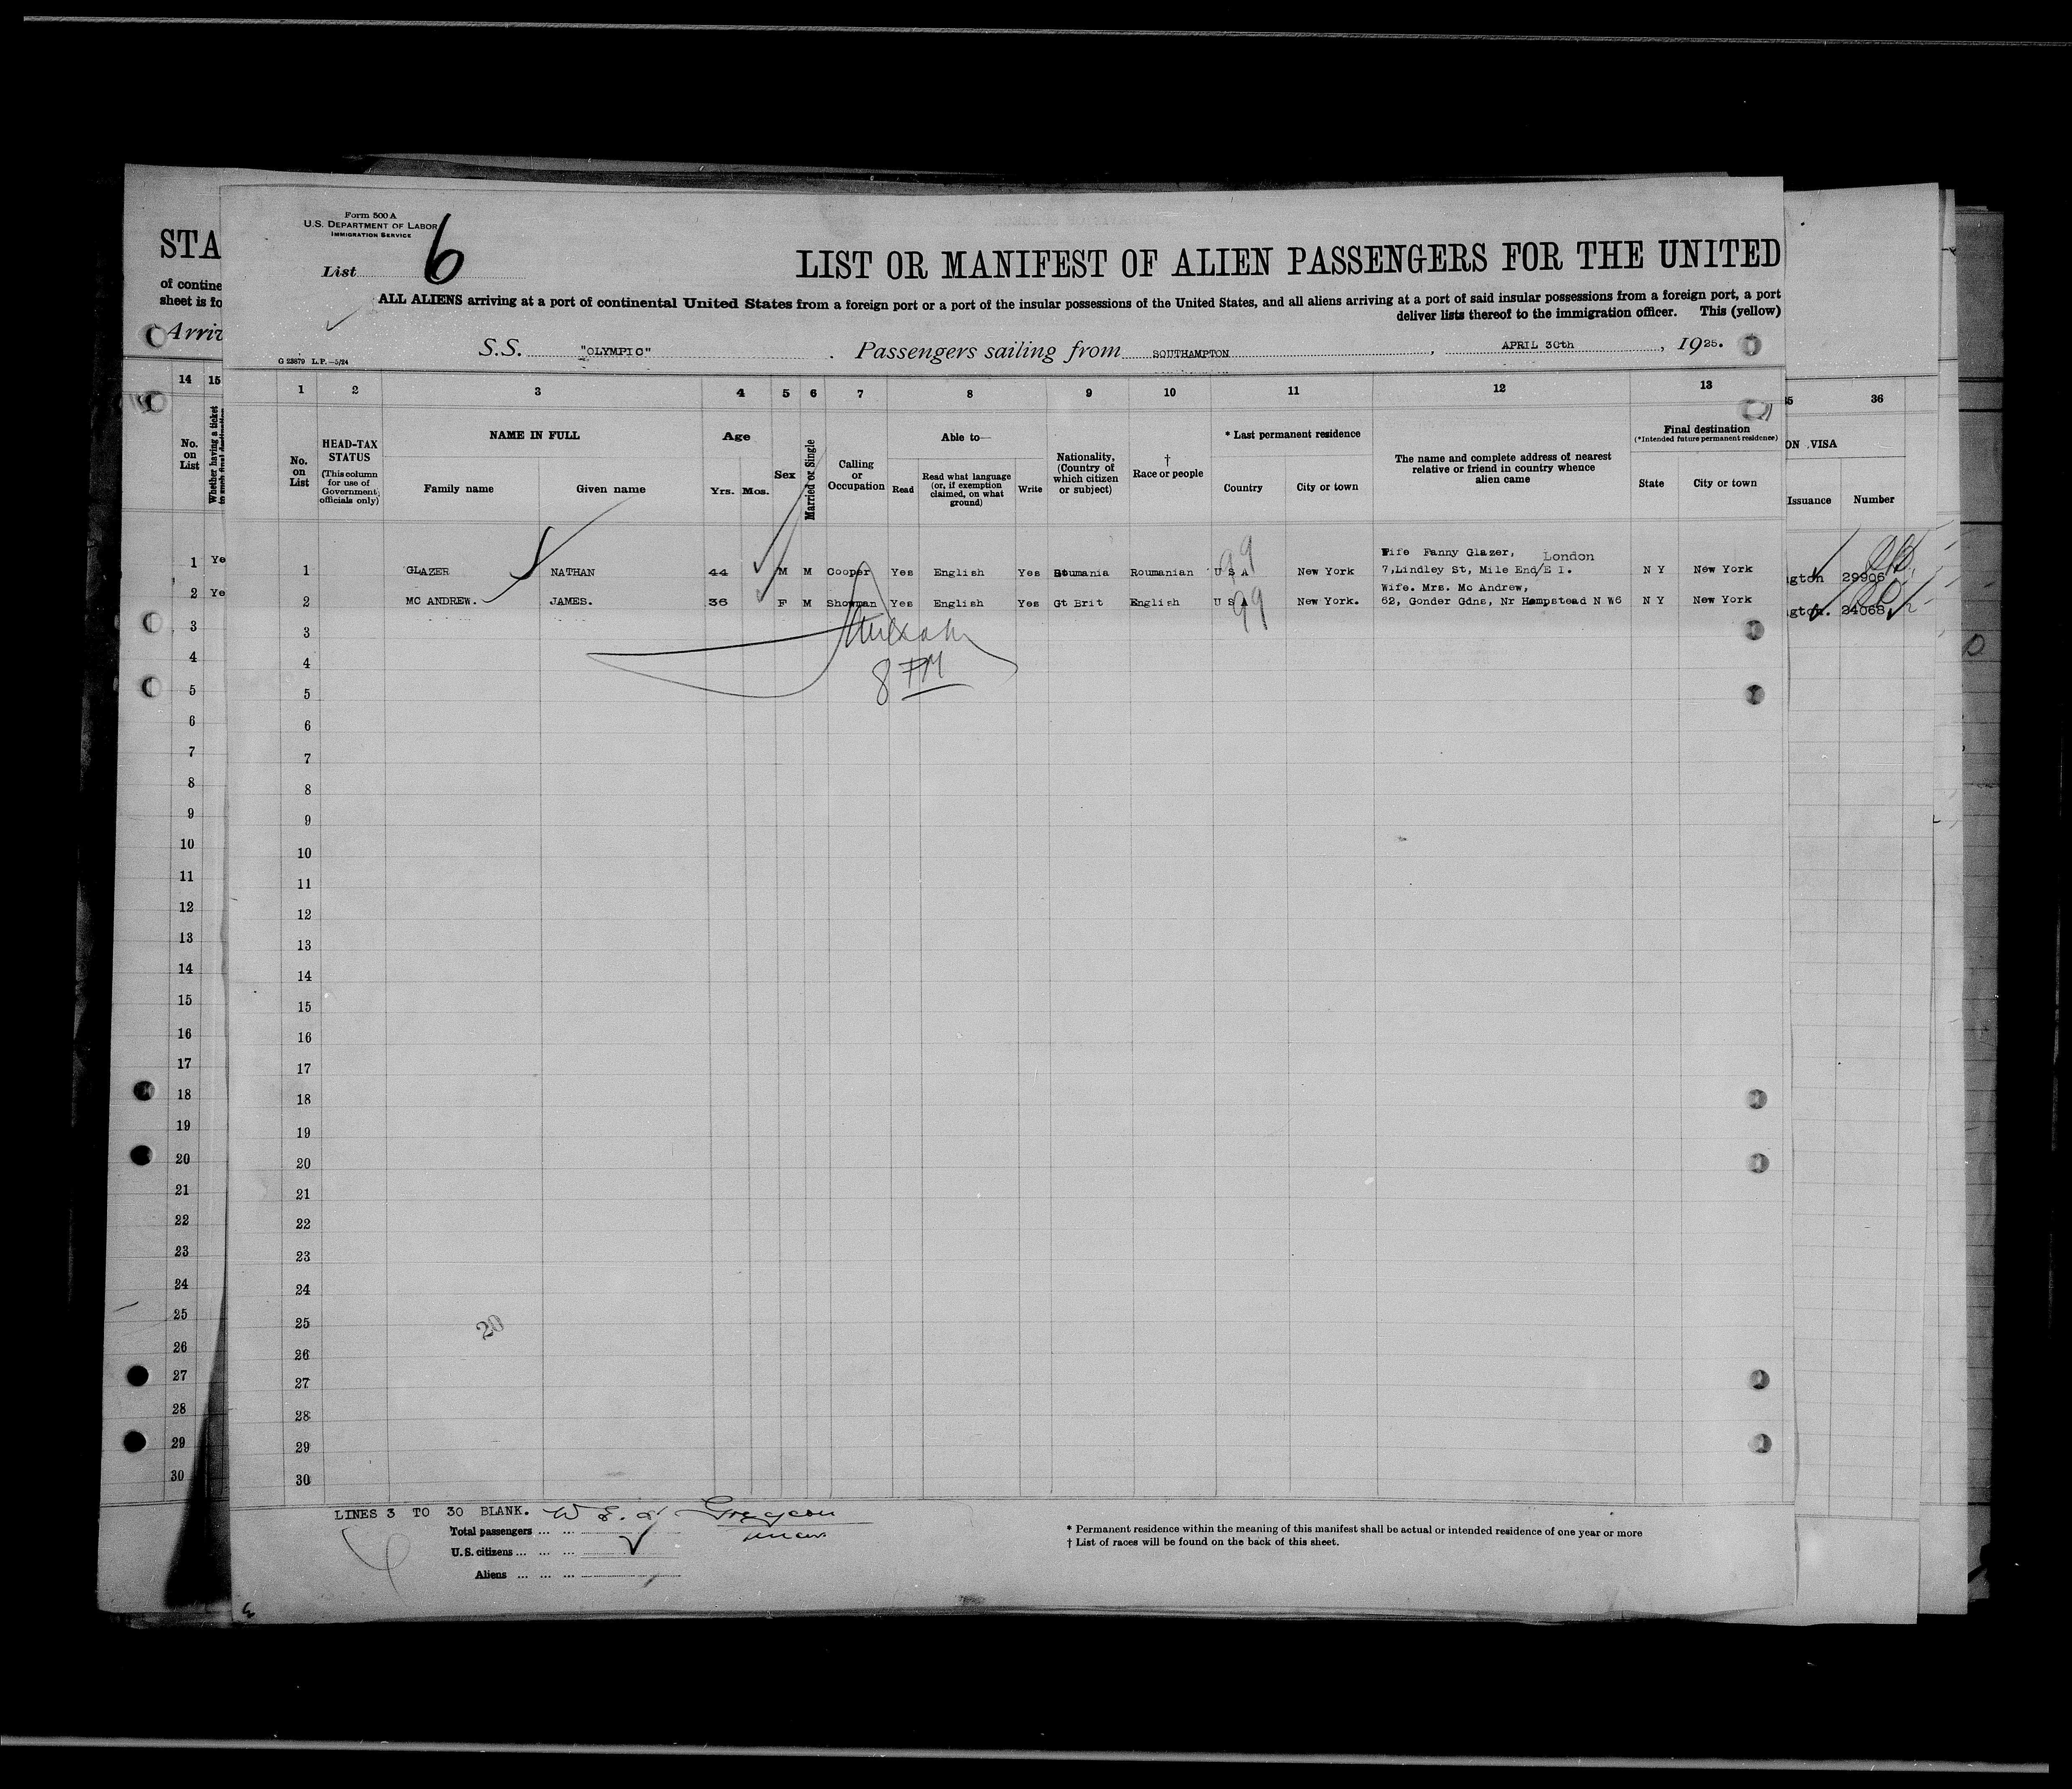 Form 500 A
U.S. DEPARTMENT OF LABOR
IMMIGRATION SERVICE
List 6
LIST OR MANIFEST OF ALIEN PASSENGERS FOR THE UNITED
ALL ALIENS arriving at a port of continental United States from a foreign port or a port of the insular possessions of the United States, and all aliens arriving at a port of said insular possessions from a foreign port, a port
deliver lists thereof to the immigration officer. This (yellow)
G 23879 L.P.—5/24
S.S. "OLYMPIC" . Passengers sailing from SOUTHAMPTON , APRIL 30th , 1925.
STA
of contine
sheet is fo
Arriv
14 15
No. on List
Whether having a ticket
1 2 3 4 5 6 7 8 9 10 11 12 13
No. on List
HEAD-TAX STATUS
(This column for use of Government officials only)
NAME IN FULL
Family name Given name
Age
Yrs. Mos.
Sex
Married or Single
Calling or Occupation
Able to—
Read
Read what language (or, if exemption claimed, on what ground)
Write
Nationality, (Country of which citizen or subject)
† Race or people
* Last permanent residence
Country City or town
The name and complete address of nearest relative or friend in country whence alien came
Final destination
(*Intended future permanent residence)
State City or town
36
ON VISA
Issuance Number
1 Ye
2 Ye
Wife Fanny Glazer, London
1 GLAZER NATHAN 44 M M Cooper Yes English Yes Roumania Roumanian U S A New York 7,Lindley St, Mile End/E 1. N Y New York
99
gton 29906
Wife. Mrs. Mc Andrew,
2 MC ANDREW. JAMES. 36 F M Showman Yes English Yes Gt Brit English U S A New York. 62, Gonder Gdns, Nr Hampstead N W6 N Y New York
99
gton. 24068
3 3
4 4
8 PM
5 5
6 6
7 7
8 8
9 9
10 10
11 11
12 12
13 13
14 14
15 15
16 16
17 17
18 18
19 19
20 20
21 21
22 22
23 23
24 24
25 25
20
26 26
27 27
28 28
29 29
30 30
LINES 3 TO 30 BLANK.
Total passengers ... ...
U.S. citizens ... ... ...
Aliens ... ... ...
* Permanent residence within the meaning of this manifest shall be actual or intended residence of one year or more
† List of races will be found on the back of this sheet.